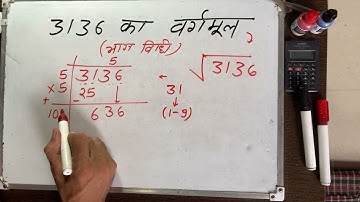 3136 का वर्गमूल
(भाग विधि)
5
5 3136
×5 -25↓
+
10 636
√3136
31
↓
(1-9)